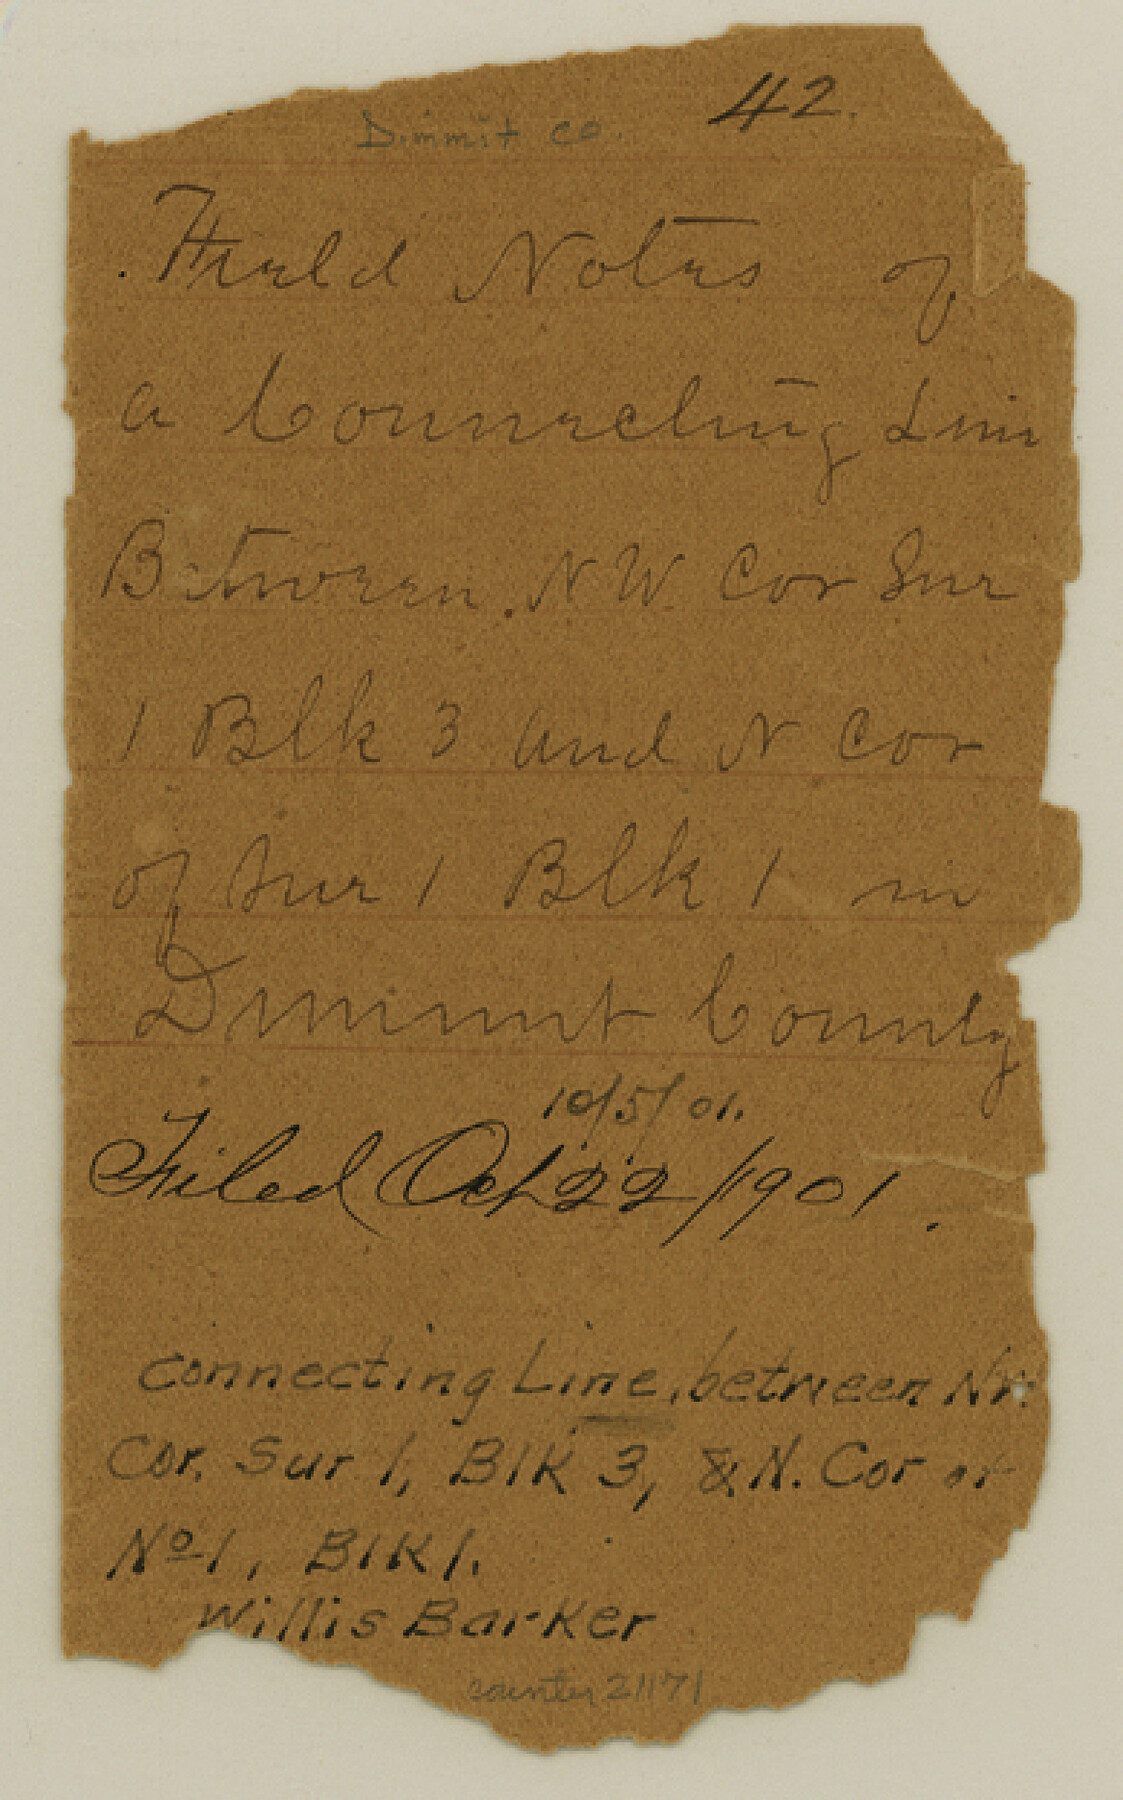 42.
Dimmit Co.
Field Notes of
a Connecting Line
Between NW Cor Sur
1 Blk 3 and N Cor
of Sur 1 Blk 1 in
Dimmit County
10/5/01.
Filed Oct 22/1901.
connecting Line, between NW.
Cor. Sur 1, Blk 3, & N. Cor of
No 1, Blk 1.
Willis Barker
counter 21171